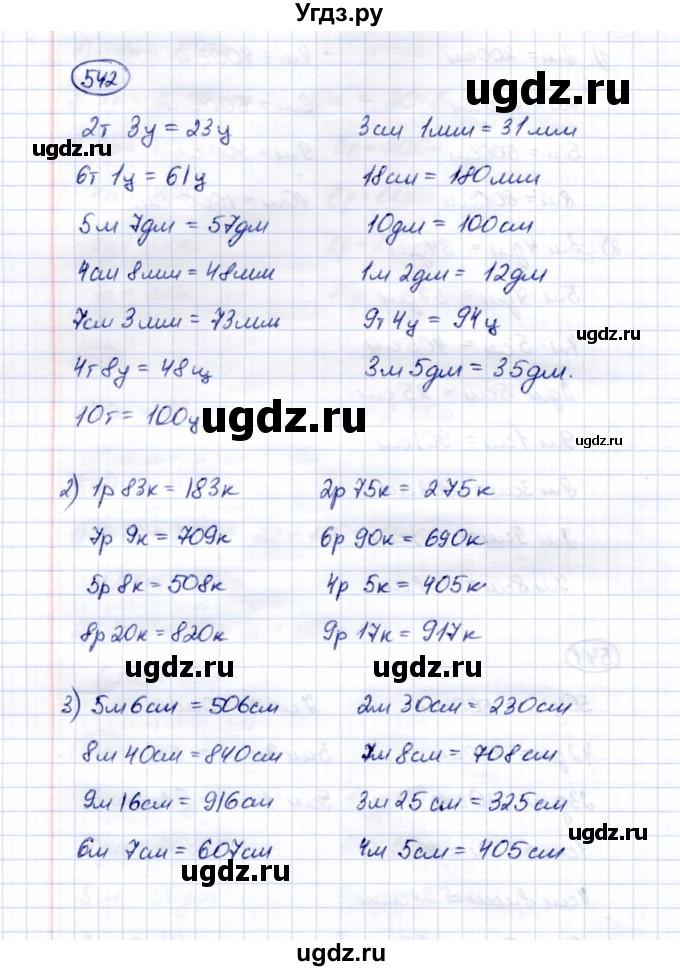 Угдз.ру
542
2т 3ц = 23ц 3см 1мм = 31мм
6т 1ц = 61ц 18см = 180мм
5м 7дм = 57дм 10дм = 100см
4см 8мм = 48мм 1м 2дм = 12дм
7см 3мм = 73мм 9т 4ц = 94ц
4т 8ц = 48ц 3м 5дм = 35дм.
10т = 100ц
2) 1р 83к = 183к 2р 75к = 275к
7р 9к = 709к 6р 90к = 690к
5р 8к = 508к 4р 5к = 405к
8р 20к = 820к 9р 17к = 917к
3) 5м 6см = 506см 2м 30см = 230см
8м 40см = 840см 7м 8см = 708см
9м 16см = 916см 3м 25см = 325см
6м 7см = 607см 4м 5см = 405см
ugdz.ru
ugdz.ru
ugdz.ru
ugdz.ru
ugdz.ru
ugdz.ru
ugdz.ru
ugdz.ru
ugdz.ru
ugdz.ru
ugdz.ru